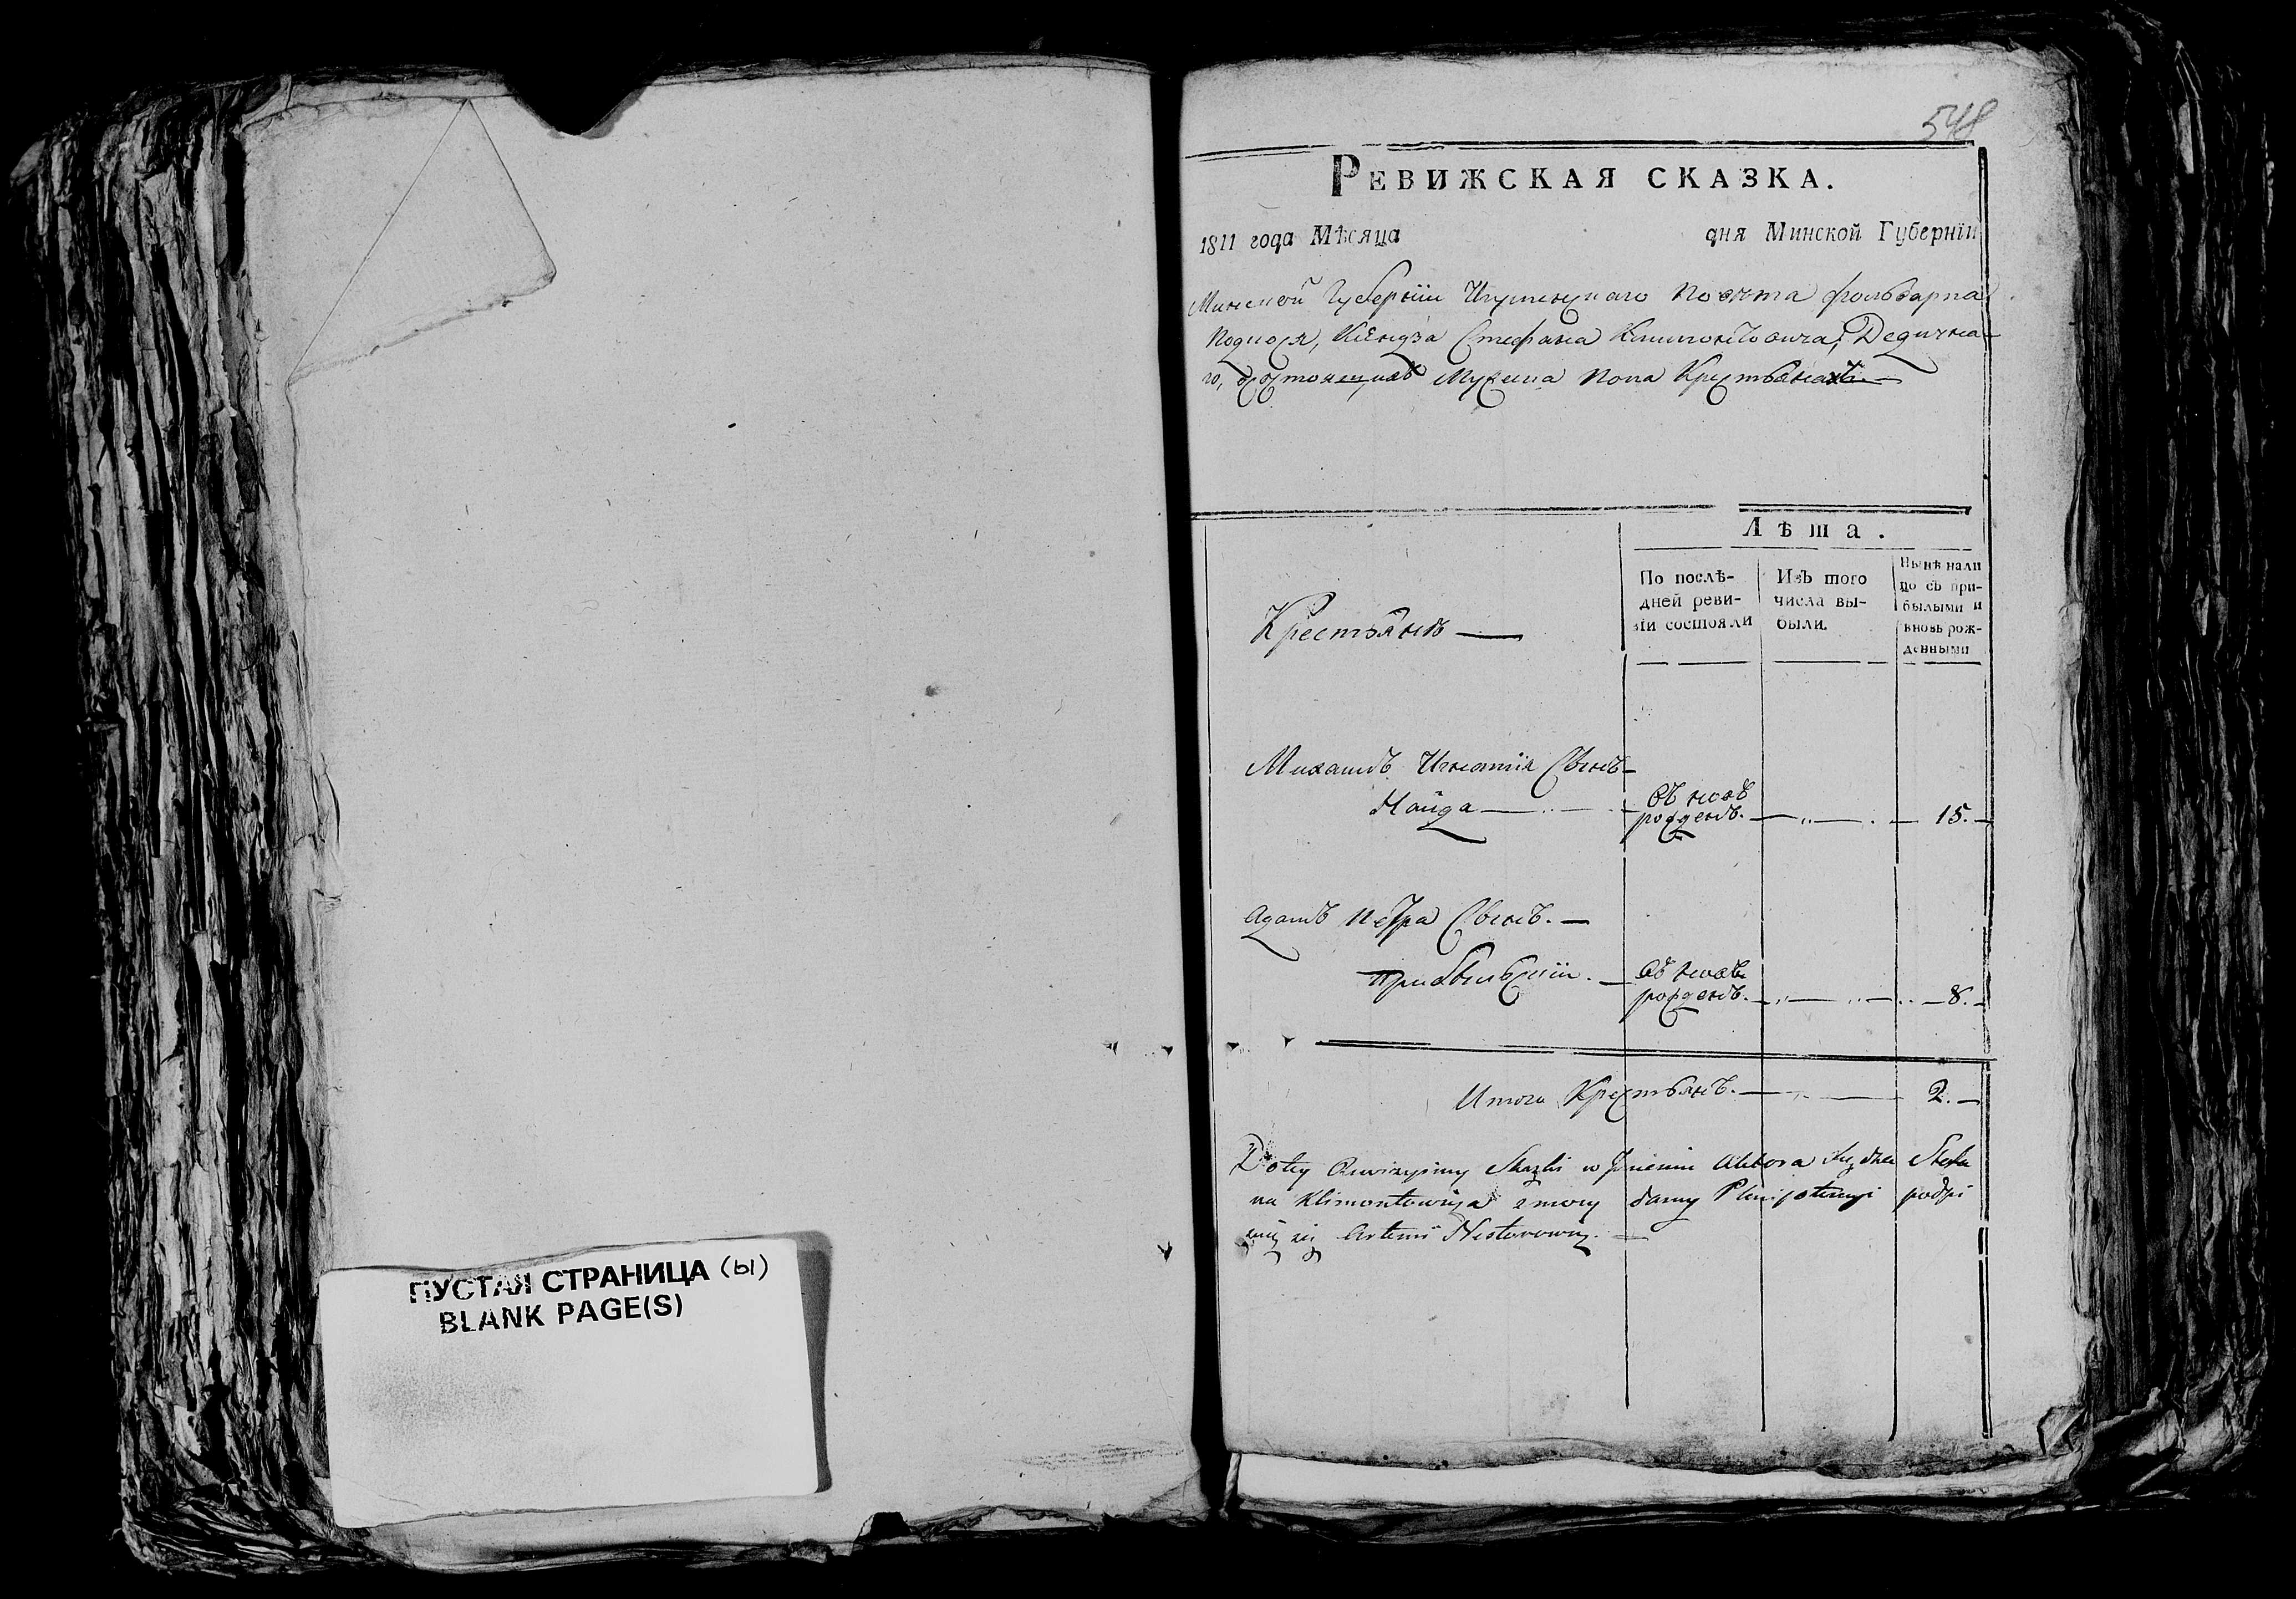 548
РЕВИЖСКАЯ СКАЗКА.
1811 года Мѣсяца дня Минской Губернїи
Минской Губернїи Игуменскаго Повѣта фольварка
Подкося, Ксендза Стефана Климонтовича, Дедична-
го, мужеска пола Крестьянахъ.
Лѣта.
Крестьянъ
По послѣ-
дней реви-
зїи состояли
Изъ того
числа вы-
были.
Нынѣ нали
цо съ при-
былыми и
вновь рож-
денными
Михаилъ Игнатїя Сынъ
Найда
въ новъ
рожденъ. 15.
Адамъ Петра Сынъ.
прибывшїи. въ новъ
рожденъ. 8.
Итого Крестьянъ. 2.
Do tey Rewizyiney Skazki w Imieniu Aktora Xiędza Stefa
na Klimontowicza z mocy daney Plenipotencyi podpi
suię się Artemi Nestorowicz.
ПУСТАЯ СТРАНИЦА (Ы)
BLANK PAGE(S)